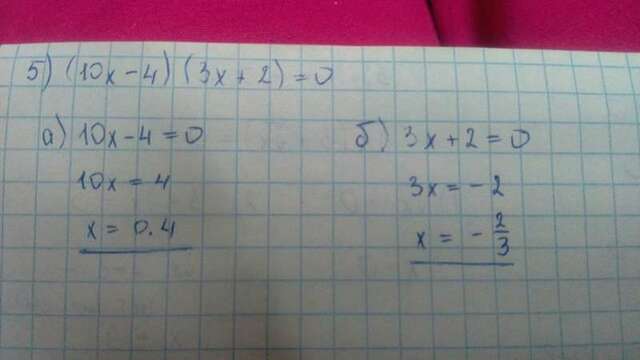 5) (10x-4) (3x+2)=0
а) 10x-4=0
10x=4
x=0.4
б) 3x+2=0
3x=-2
x=-2/3